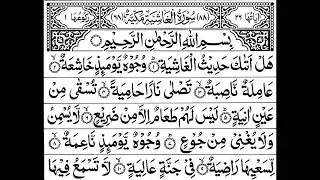 اٰيَاتُهَا ٢٦ (٨٨) سُوْرَةُ الْغَاشِيَةِ مَكِّيَّةٌ (٦٨) رُكُوْعُهَا ١
بِسْمِ اللّٰهِ الرَّحْمٰنِ الرَّحِيْمِ
هَلْ اَتٰىكَ حَدِيْثُ الْغَاشِيَةِ ۝١ وُجُوْهٌ يَّوْمَىِٕذٍ خَاشِعَةٌ ۝٢
عَامِلَةٌ نَّاصِبَةٌ ۝٣ تَصْلٰى نَارًا حَامِيَةً ۝٤ تُسْقٰى مِنْ
عَيْنٍ اٰنِيَةٍ ۝٥ لَيْسَ لَهُمْ طَعَامٌ اِلَّا مِنْ ضَرِيْعٍ ۝٦ لَّا يُسْمِنُ
وَلَا يُغْنِيْ مِنْ جُوْعٍ ۝٧ وُجُوْهٌ يَّوْمَىِٕذٍ نَّاعِمَةٌ ۝٨
لِّسَعْيِهَا رَاضِيَةٌ ۝٩ فِيْ جَنَّةٍ عَالِيَةٍ ۝١٠ لَّا تَسْمَعُ فِيْهَا